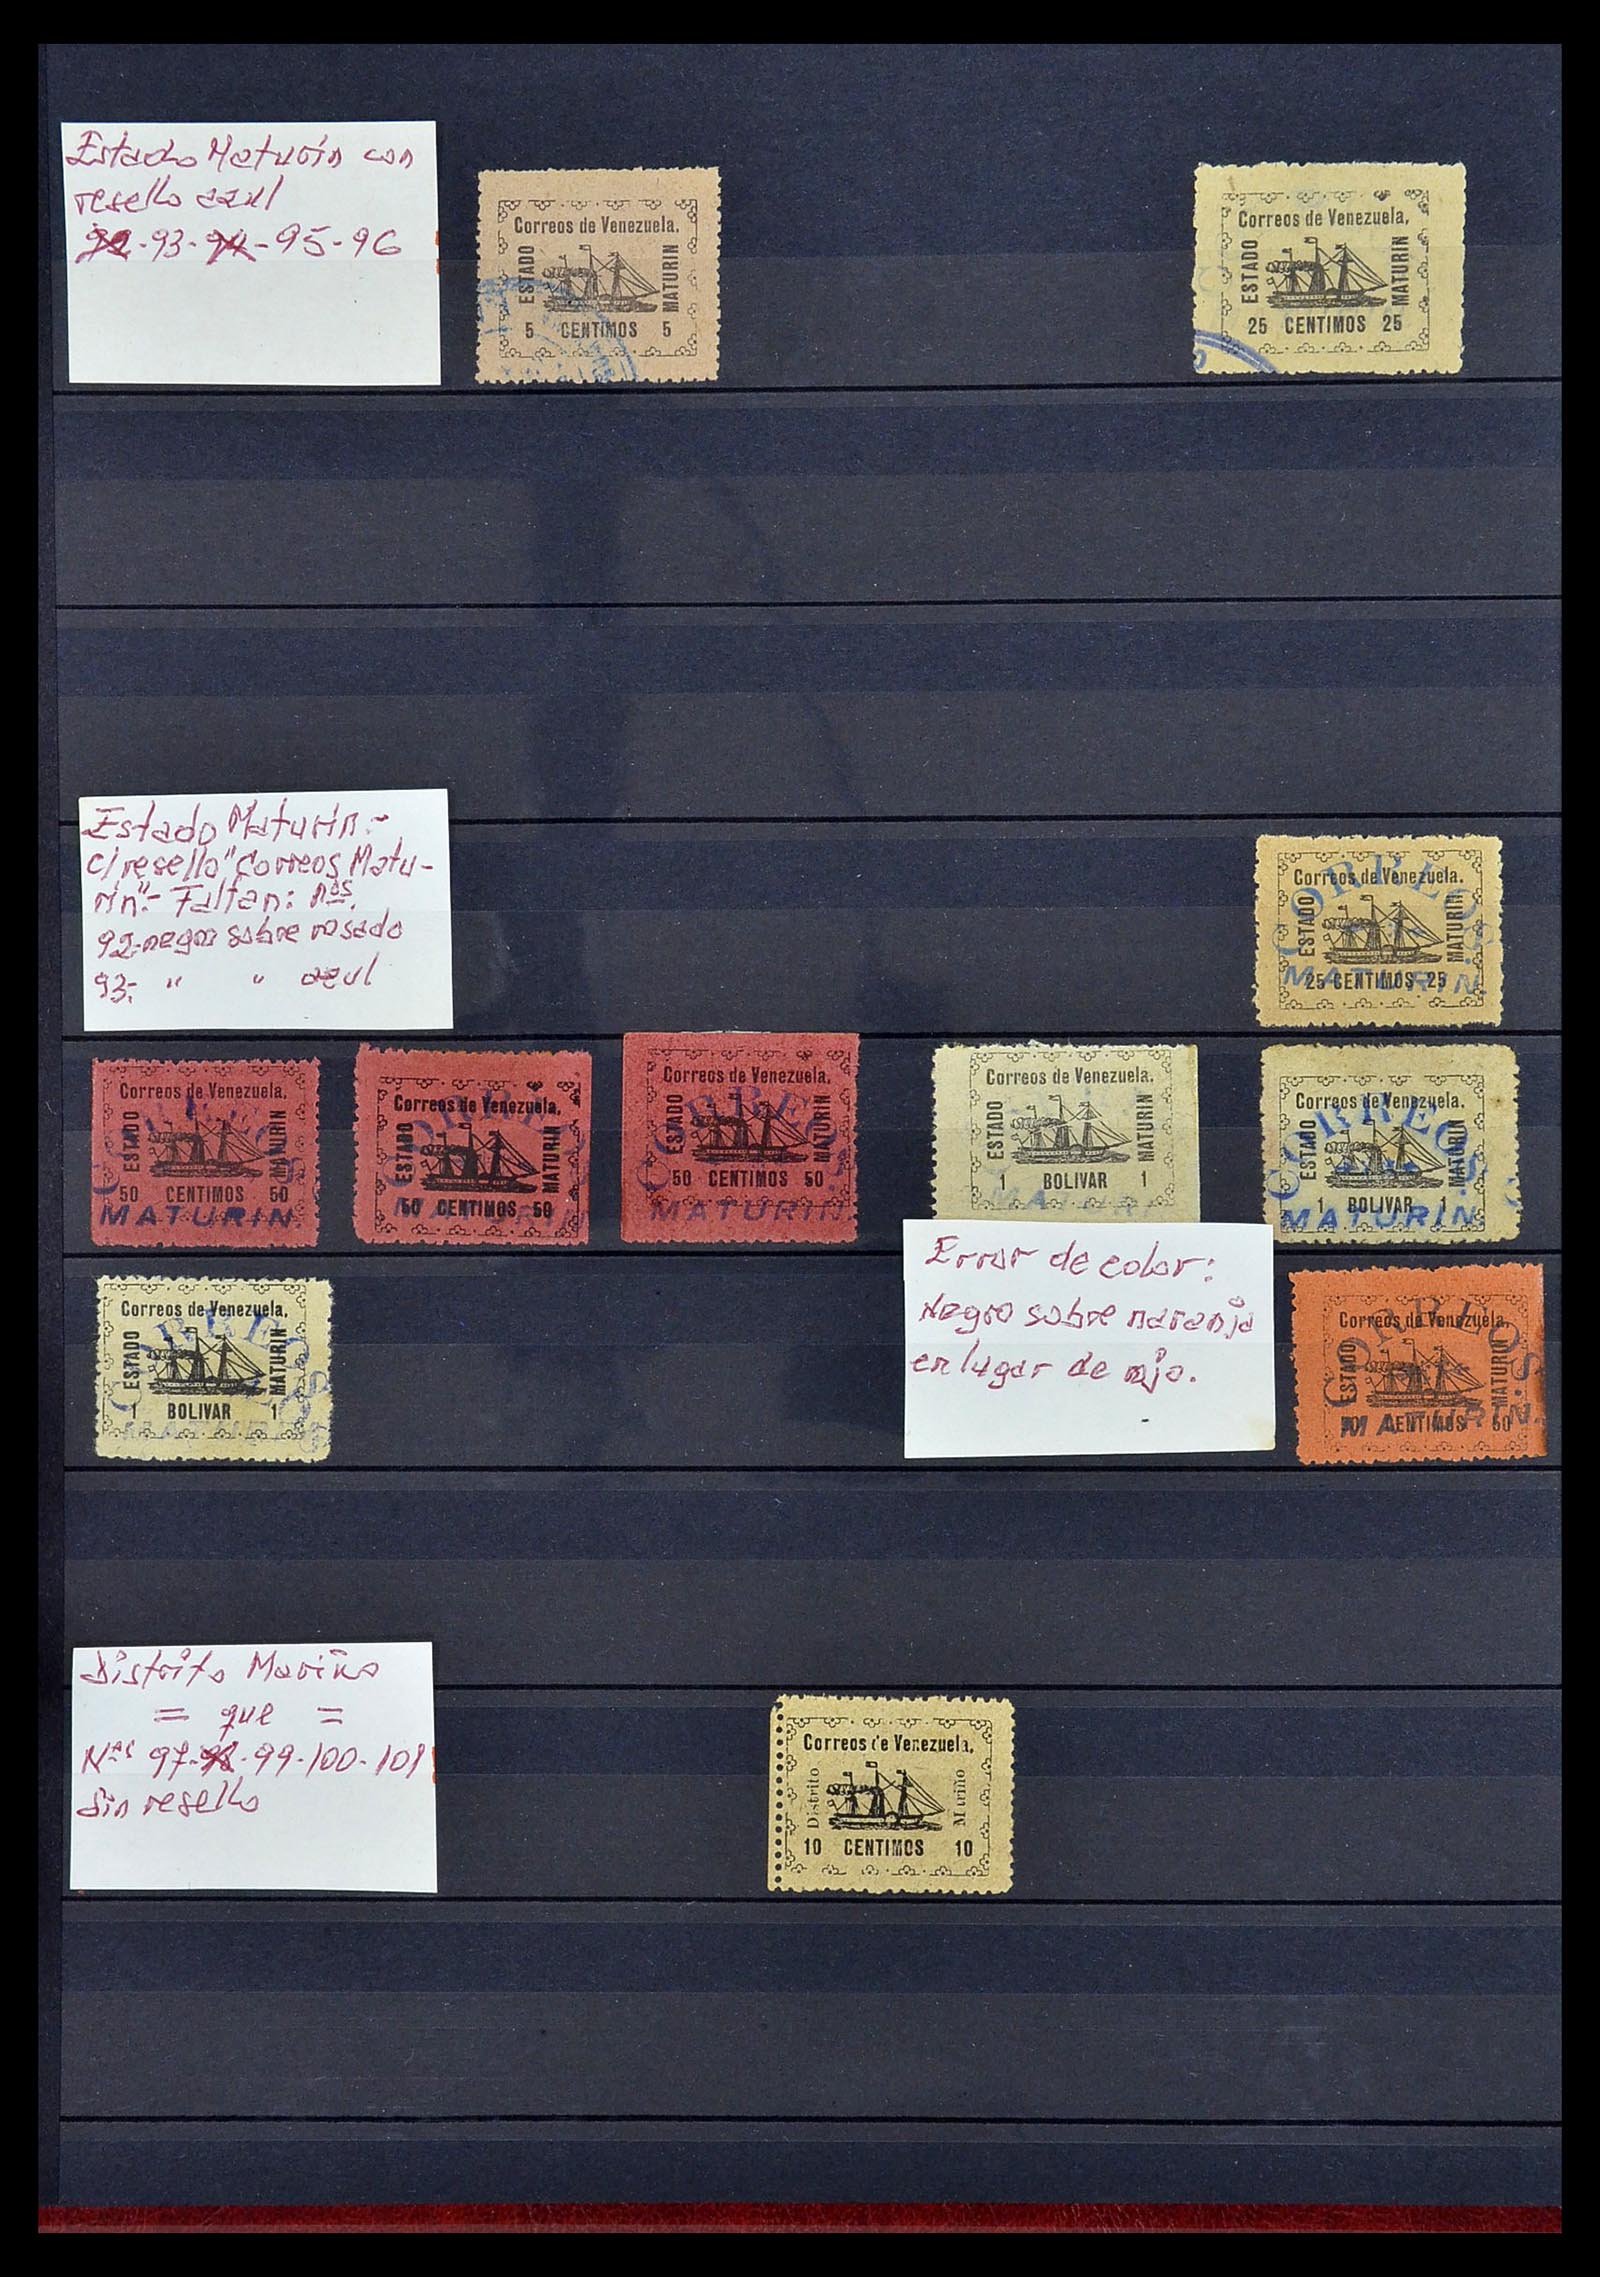 Estado Maturín con
resello azul
92-93-94-95-96
Correos de Venezuela.
ESTADO
MATURIN
5 CENTIMOS 5
Correos de Venezuela.
ESTADO
MATURIN
25 CENTIMOS 25
Estado Maturín:-
c/resello "Correos Matu-
rín":- Faltan: Nos.
92-negro sobre rosado
93- " " azul
Correos de Venezuela.
ESTADO
MATURIN
25 CENTIMOS 25
CORREOS
MATURIN.
Correos de Venezuela.
ESTADO
MATURIN
50 CENTIMOS 50
CORREOS
MATURIN.
Correos de Venezuela.
ESTADO
MATURIN
50 CENTIMOS 50
CORREOS
MATURIN
Correos de Venezuela.
ESTADO
MATURIN
50 CENTIMOS 50
CORREOS
MATURIN.
Correos de Venezuela.
ESTADO
MATURIN
1 BOLIVAR 1
MATURI
Correos de Venezuela.
ESTADO
MATURIN
1 BOLIVAR 1
CORREOS
MATURIN.
Correos de Venezuela.
ESTADO
MATURIN
1 BOLIVAR 1
CORREOS
MATURI
Error de color:
Negro sobre naranja
en lugar de rojo.
Correos de Venezuela.
ESTADO
MATURIN
CENTIMOS 50
CORREOS
MATURIN.
Distrito Mariño
= que =
Nos 97-98-99-100-101
Sin resello
Correos de Venezuela.
Distrito
Mariño
10 CENTIMOS 10